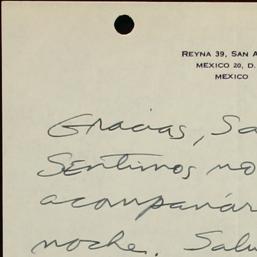 REYNA 39, SAN A
MEXICO 20, D.
MEXICO
Gracias, Sa
Sentimos no
acompañar
noche. Salu